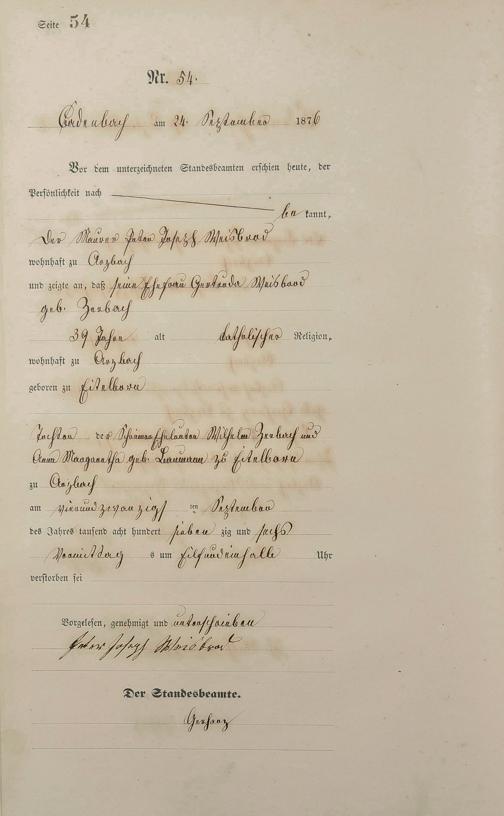 Seite 54
Nr. 54.
Cadenbach am 24. September 1876
Vor dem unterzeichneten Standesbeamten erschien heute, der
Persönlichkeit nach
be kannt,
der Maurer Peter Joseph Weisbrod
wohnhaft zu Arzbach
und zeigte an, daß seine Ehefrau Gertruda Weisbrod
geb. Zerbach
39 Jahre alt katholischer Religion,
wohnhaft zu Arzbach
geboren zu Eitelborn
Tochter der Eheleuten Wilhelm Zerbach und
Anna Margaretha geb. zu Eitelborn
zu Arzbach
am vierundzwanzigs ten September
des Jahres tausend acht hundert sieben zig und sechs
Vormittag s um Eilfundeinhalb Uhr
verstorben sei
Vorgelesen, genehmigt und unterschrieben
Peter Joseph Weisbrod
Der Standesbeamte.
Gerharz